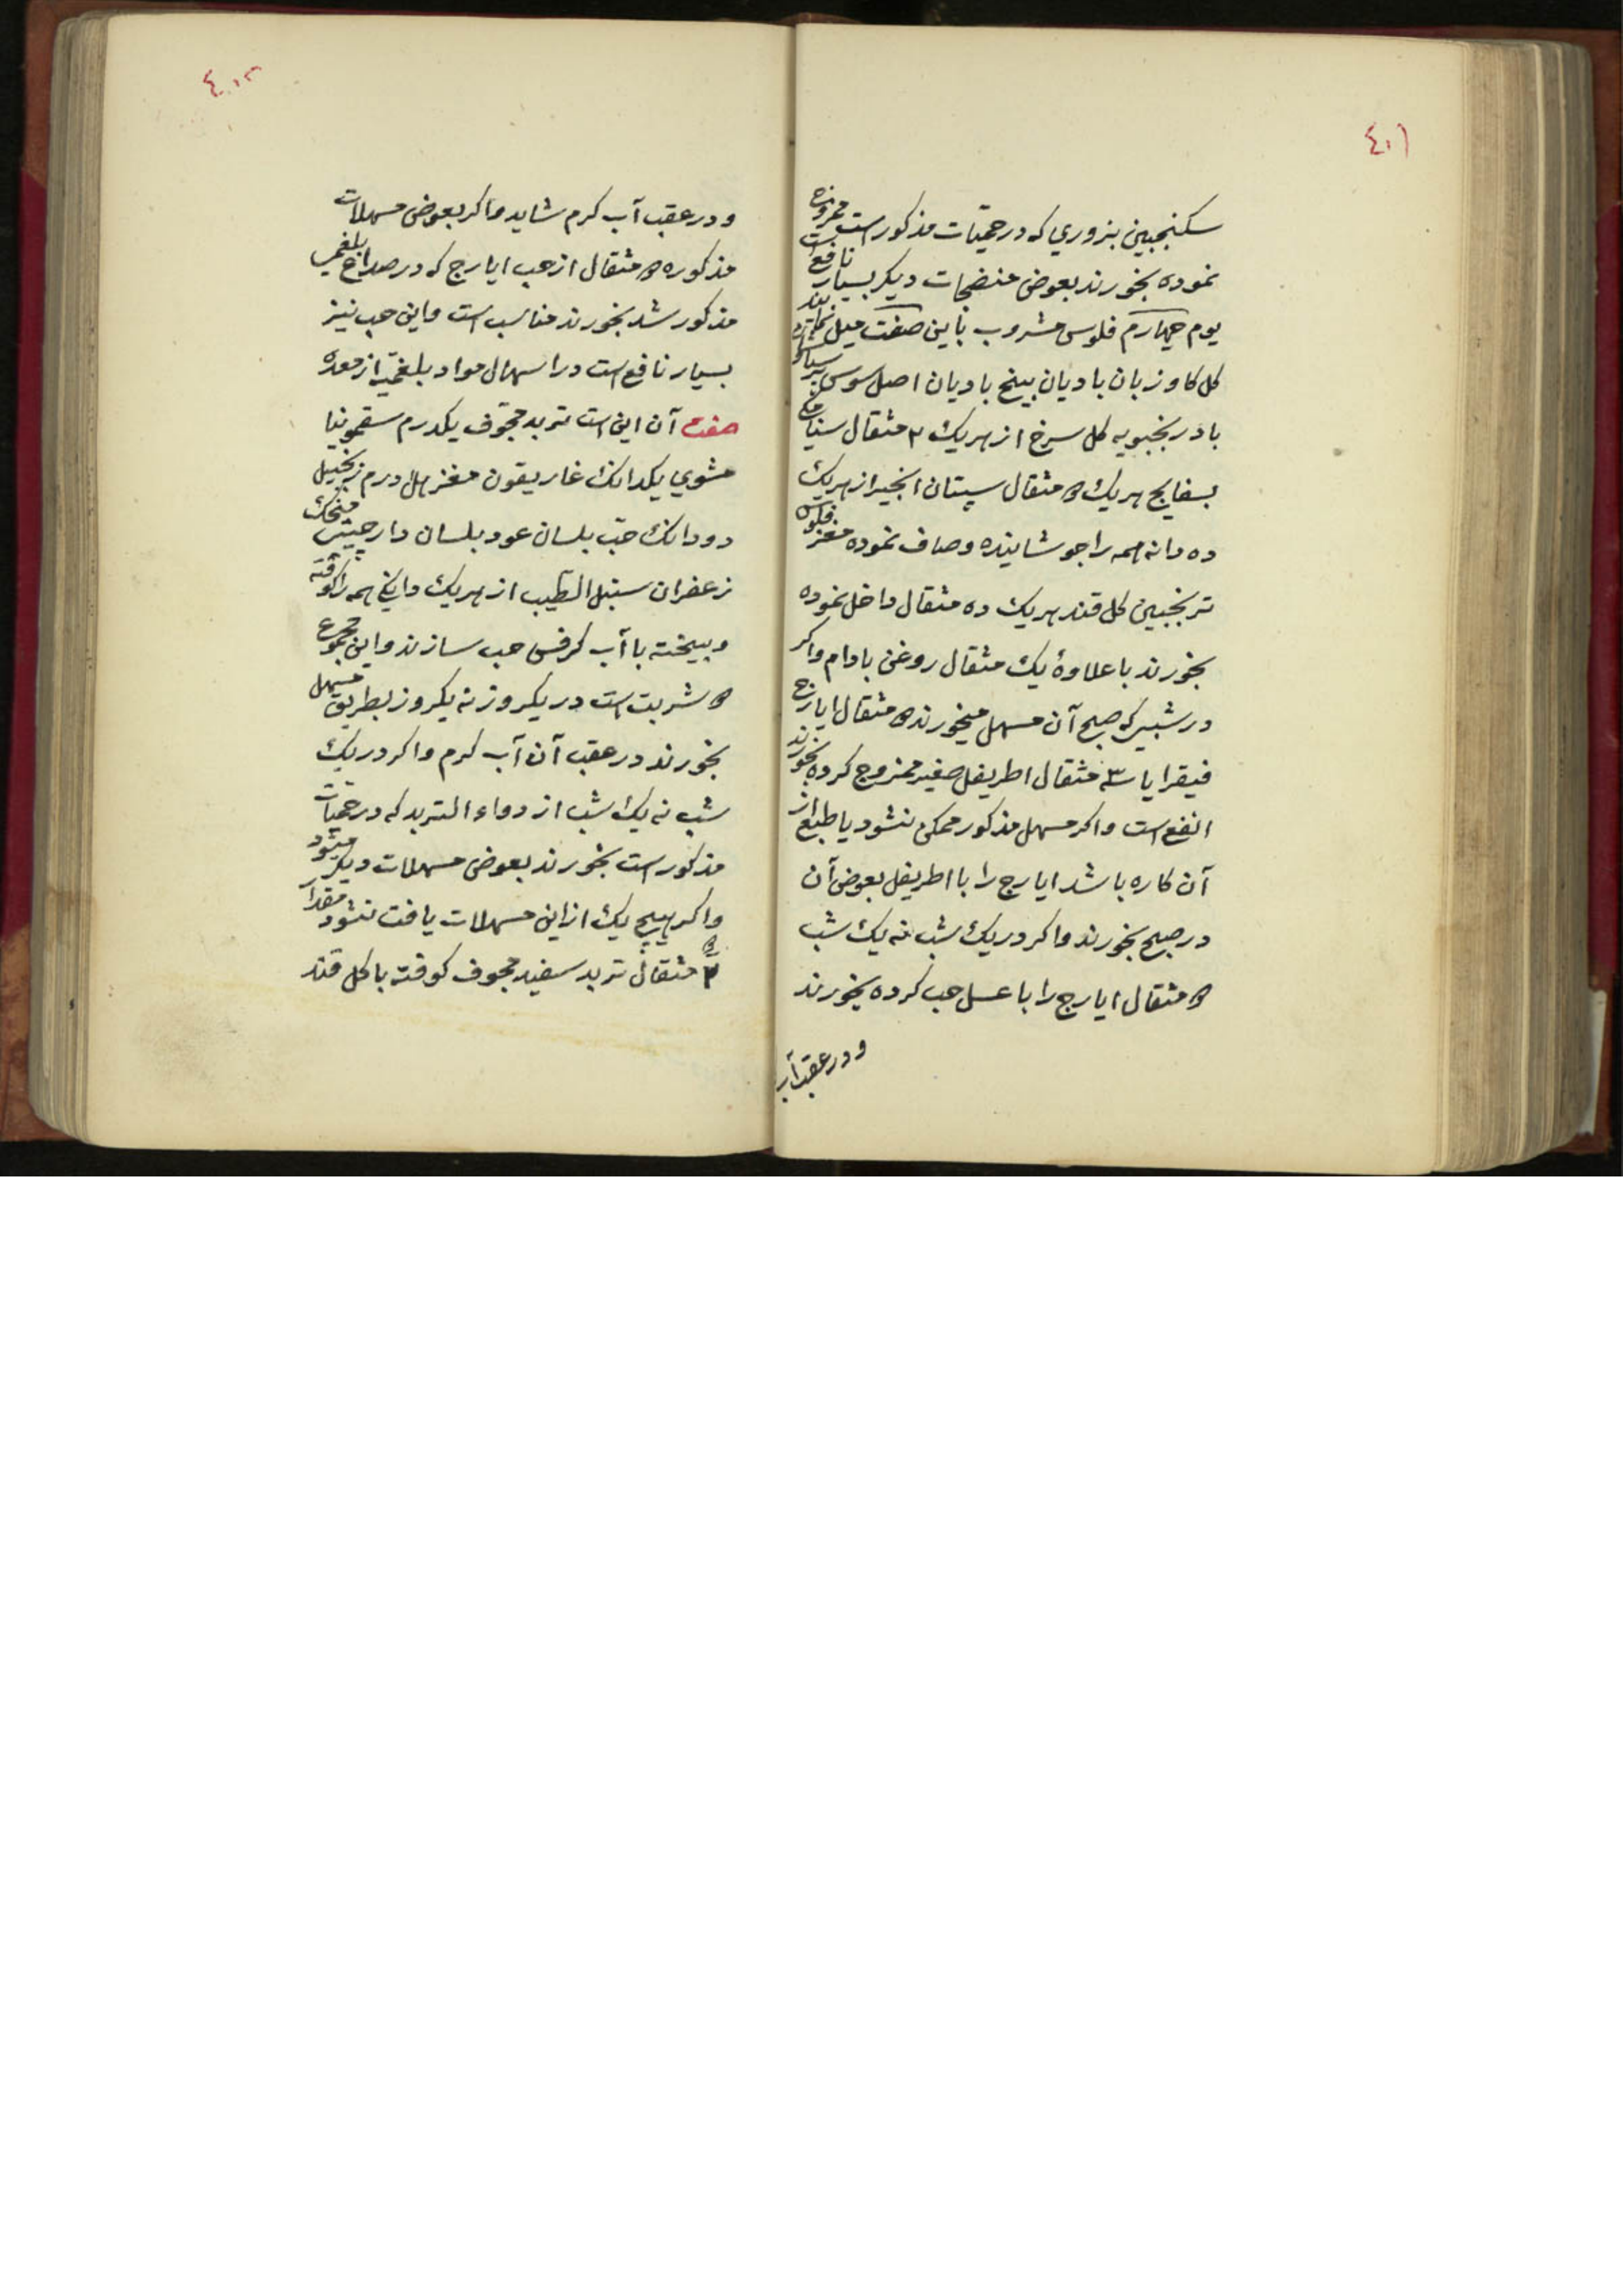 ٤٠١
سکنجبین بزوري که در حمیّات مذکور است ممزوج
نموده بخورند بعوض منضجات دیکر بسیار نافع است
یوم چهارم فلوس مشروب باین صفت میل نمایند
کل کاوزبان بادیان بیخ بادیان اصل سوس پرسیاوشان
بادرنجبویه کل سرخ از هریک ۲ مثقال سنا مکي
بسفایج هریک ۵ مثقال سپستان انجیر از هریک
ده دانه همه را جوشاینده و صاف نموده مغز فلوس
ترنجبین کل قند هریک ده مثقال داخل نموده
بخورند با علاوهٔ یک مثقال روغن بادام و اکر
در شبیکه صبح آن مسهل میخورند ۵ مثقال ایارج
فیقرا یا ۳ مثقال اطریفل صغیر ممزوج کرده بخورند
انفع است و اکر مسهل مذکور ممکن نشود یا طبع از
آن کاره باشد ایارج را با اطریفل بعوض آن
در صبح بخورند و اکر در یک شب نه یک شب
۵ مثقال ایارج را با عسل حب کرده بخورند
و در عقب آب
٤٠٢
و در عقب آب کرم شاید و اکر بعوض مسهلات
مذکوره ۵ مثقال از حب ایارج که در صداع بلغمي
مذکور شد بخورند مناسب است و این حب نیز
بسیار نافع است در اسهال مواد بلغمیّه از معده
صفت آن این است تربد مجوّف یکدرم سقمونیا
مشوي یکدانک غاریقون مغز هل درم زنجبیل
دو دانک حبّ بلسان عود بلسان دارچیني
زعفران سنبل الطیب از هریک دانیخ همه را کوفته
و بیخته با آب کرفس حب سازند و این مجموع
۵ شربت است در یکروز نه یکروز بطریق مسهل
بخورند در عقب آن آب کرم و اکر در یک
شب نه یک شب از دواء التربد که در حمیّات
مذکور است بخورند بعوض مسهلات دیکر میشود
و اکر هیچ یک از این مسهلات یافت نشود مقدار
۲ مثقال تربد سفید مجوف کوفته با کل قند